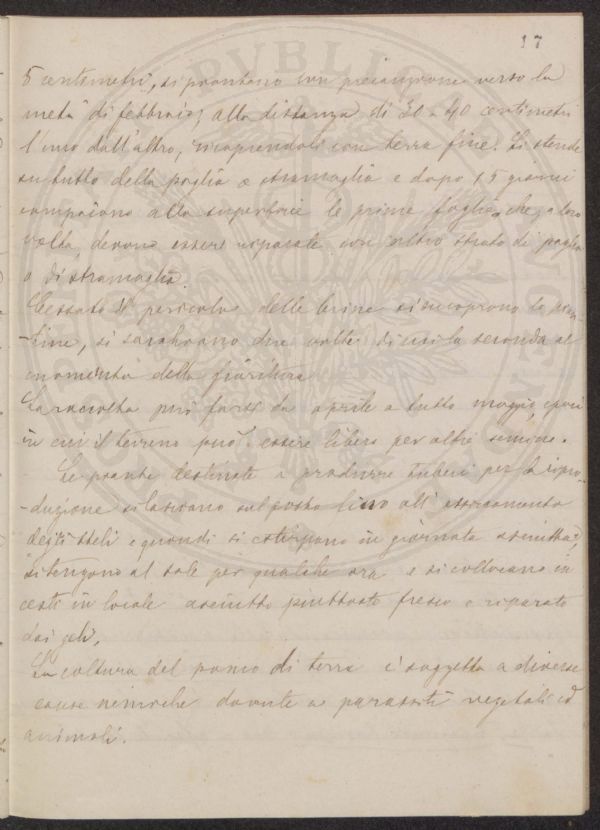 17
5 centimetri, si piantano con precauzione verso la
metà di febbraio, alla distanza di 30 a 40 centimetri
l'uno dall'altro, ricoprendoli con terra fine. Si stende
su tutto della paglia o stramaglia e dopo 15 giorni
compaiono alla superficie le prime foglie, che, a loro
volta, devono essere riparate con altro strato di paglia
o di stramaglia.
Cessato il pericolo delle brine si scoprono le pian-
-tine, si sarchiano due volte di cui la seconda al
momento della fioritura.
La raccolta può farsi da aprile a tutto maggio, epoca
in cui il terreno può essere libero per altre semine.
Le piante destinate a produrre tuberi per la ripro-
-duzione si lasciano sul posto fino all'essiccamento
degli steli e quindi si estirpano in giornata asciutta,
si tengono al sole per qualche ora e si collocano in
cesti in locale asciutto piuttosto fresco e riparato
dai geli.
La coltura del pomo di terra è soggetta a diverse
cause nemiche dovute a parassiti vegetali ed
animali.